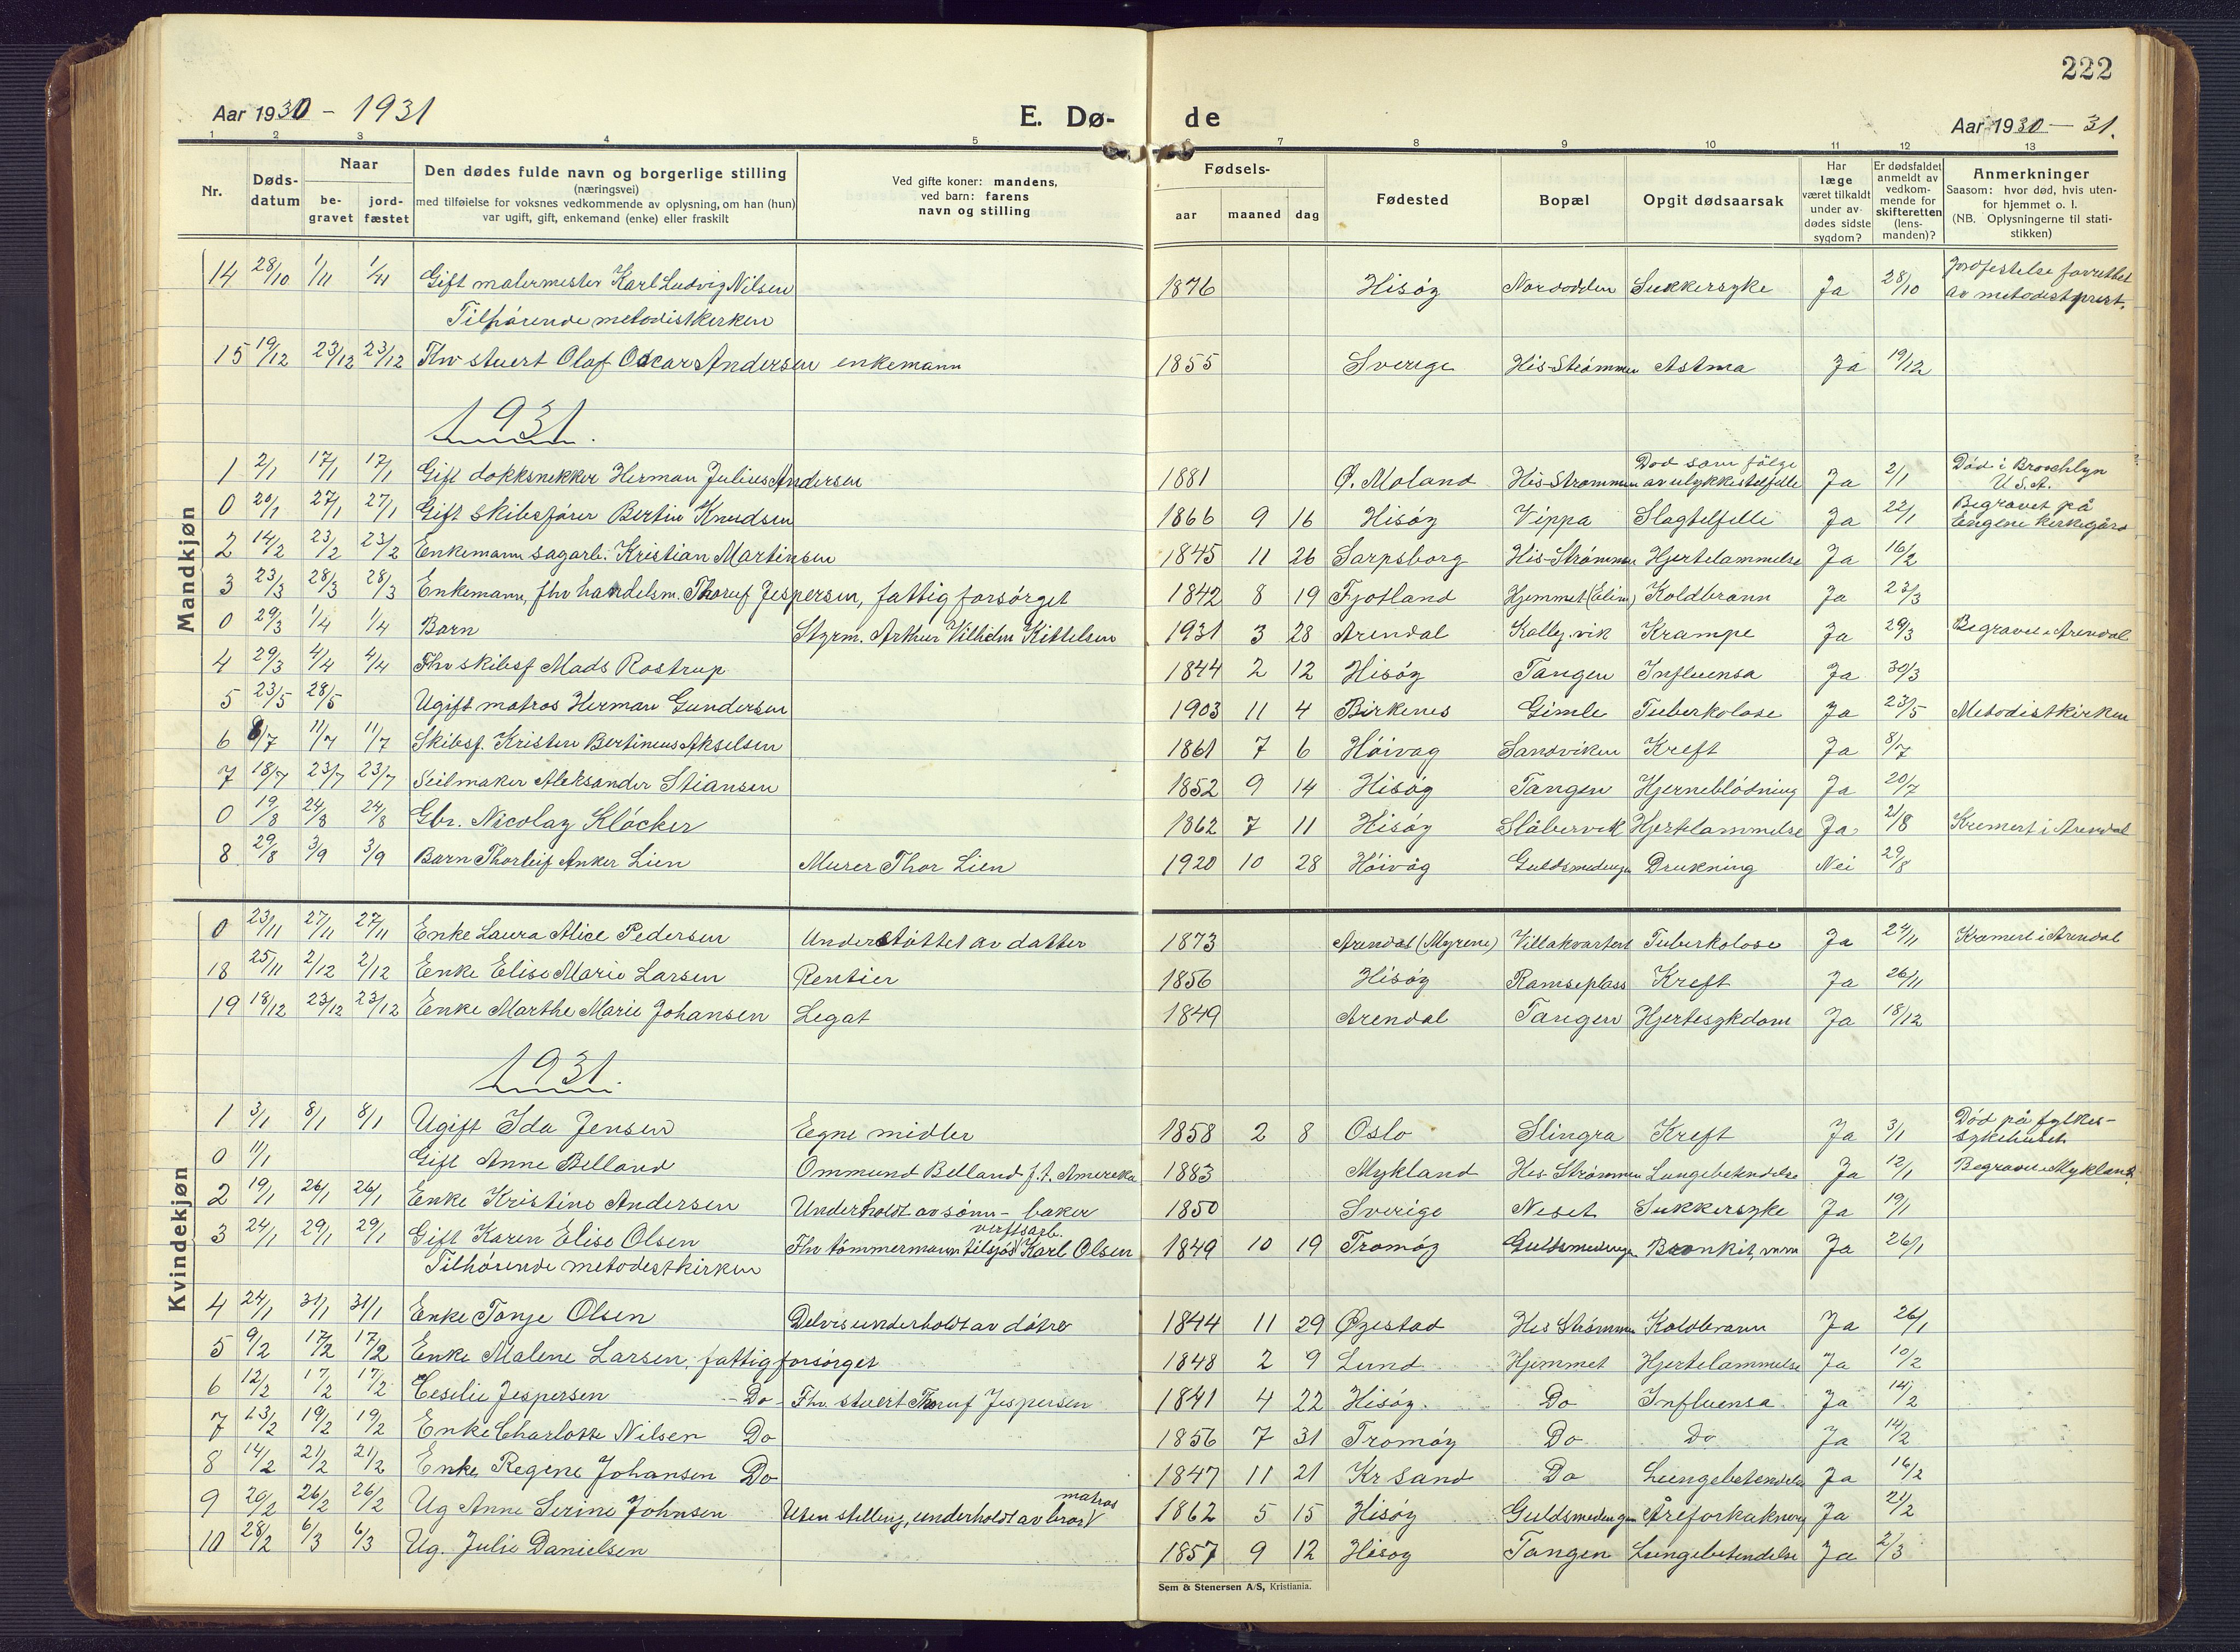 222
Aar 1930 - 1931
E. Dø-
de
Aar 1930 - 31.
1 2 3 4 5 6 7 8 9 10 11 12 13
Nr.
Døds-
datum
Naar
be-
gravet
jord-
fæstet
Den dødes fulde navn og borgerlige stilling
(næringsvei)
med tilføielse for voksnes vedkommende av oplysning, om han (hun)
var ugift, gift, enkemand (enke) eller fraskilt
Ved gifte koner: mandens,
ved barn: farens
navn og stilling
Fødsels-
aar maaned dag
Fødested
Bopæl
Opgit dødsaarsak
Har
læge
været tilkaldt
under av-
dødes sidste
sygdom?
Er dødsfaldet
anmeldt av
vedkom-
mende for
skifteretten
(lens-
manden)?
Anmerkninger
Saasom: hvor død, hvis uten-
for hjemmet o. l.
(NB. Oplysningerne til stati-
stikken)
Mandkjøn
14 28/10 1/11 1/11 Gift malermester Karl Ludvig Nilsen 1876 Hisøy Nordodden Sukkersyke Ja 28/10 Jordfestelse forrettet
av metodistprest.
Tilhørende metodistkirken
15 19/12 23/12 23/12 Fhv stuert Olaf Oscar Andersen enkemann 1855 Sverige His-Strømmen Astma Ja 19/12
1931.
1 2/1 17/1 17/1 Gift dokksnekker Herman Julius Andersen 1881 Ø. Moland His-Strømmen Død som følge
av ulykkestilfelle Ja 2/1 Død i Brooklyn
U.S.A.
0 20/1 27/1 27/1 Gift skibsfører Bertin Knudsen 1866 9 16 Hisøy Vippa Slagtilfelle Ja 22/1 Begravet på
Engene kirkegård
2 14/2 23/2 23/2 Enkemann sagarb. Kristian Martinsen 1845 11 26 Sarpsborg His-Strømmen Hjertelammelse Ja 16/2
3 23/3 28/3 28/3 Enkemann, fhv handelsm. Thoruf Jespersen, fattigforsørget 1842 8 19 Fjotland Hjemmet Koldbrann Ja 23/3
0 29/3 1/4 1/4 Barn Styrm. Arthur Vilhelm Kittelsen 1931 3 28 Arendal Kolbj.vik Krampe Ja 29/3 Begravet i Arendal
4 29/3 4/4 4/4 Fhv skibsf Mads Rostrup 1844 2 12 Hisøy Tangen Influensa Ja 30/3
5 23/5 28/5 Ugift matros Herman Gundersen 1903 11 4 Birkenes Gimle Tuberkolose Ja 23/5 Metodistkirken
6 8/7 11/7 11/7 Skibsf. Kristen Bertineus Akselsen 1861 7 6 Høivag Sandviken Kreft Ja 8/7
7 18/7 23/7 23/7 Seilmaker Aleksander Stiansen 1852 9 14 Hisøy Tangen Hjerneblødning Ja 20/7
0 19/8 24/8 24/8 Gbr. Nicolay Kløcker 1862 7 11 Hisøy Slåbervik Hjertelammelse Ja 21/8 Kremert i Arendal
8 29/8 3/9 3/9 Barn Thorleif Anker Lien Murer Thor Lien 1920 10 28 Høivåg Guldsmedengen Drukning Nei 29/8
Kvindekjøn
0 23/11 27/11 27/11 Enke Laura Alice Pedersen Understøttet av datter 1873 Arendal (Myrene) Villakvarteret Tuberkolose Ja 24/11 Kremert i Arendal
18 25/11 2/12 2/12 Enke Elise Marie Larsen Rentier 1856 Hisøy Ramseplass Kreft Ja 26/11
19 18/12 23/12 23/12 Enke Marthe Marie Johansen Legat 1849 Arendal Tangen Hjertesykdom Ja 18/12
1931.
1 3/1 8/1 8/1 Ugift Ida Jensen Egne midler 1858 2 8 Oslo Slingra Kreft Ja 3/1 Død på fylkes-
sykehuset
0 11/1 Gift Anne Belland Ommund Belland f.t. Amerika 1883 Mykland His Strømmen Lungebetendelse Ja 12/1 Begravet i Mykland
2 19/1 26/1 26/1 Enke Kristine Andersen Underholdt av sønn - baker 1850 Sverige Neset Sukkersyke Ja 19/1
3 24/1 29/1 29/1 Gift Karen Elise Olsen Fhv tømmermann tilsjøs verftsarb. Karl Olsen 1849 10 19 Tromøy Guldsmedengen Bronkit, m.m Ja 26/1
Tilhørende metodistkirken
4 24/1 31/1 31/1 Enke Tonje Olsen Delvis underholdt av døtre 1844 11 29 Øyestad His Strømmen Koldbrann Ja 26/1
5 9/2 17/2 17/2 Enke Malene Larsen, fattigforsørget 1848 2 9 Lund Hjemmet Hjertelammelse Ja 10/2
6 12/2 17/2 17/2 Cesilie Jespersen - Do - Fhv. stuert Thoruf Jespersen 1841 4 22 Hisøy. Do Influensa Ja 14/2
7 13/2 19/2 19/2 Enke Charlotte Nilsen Do 1856 7 31 Tromøy Do Do Ja 14/2
8 14/2 21/2 21/2 Enke Regene Johansen Do 1847 11 21 Kr sand Do Lungebetendelse Ja 16/2
9 20/2 26/2 26/2 Ug Anne Serine Johnsen Uten stilling, underholdt av bror matros 1862 5 15 Hisøy Guldsmedengen Åreforkalkning Ja 21/2
10 28/2 6/3 6/3 Ug. Julie Danielsen 1857 9 12 Hisøy Tangen Lungebetendelse Ja 2/3
Sem & Stenersen A/S, Kristiania.